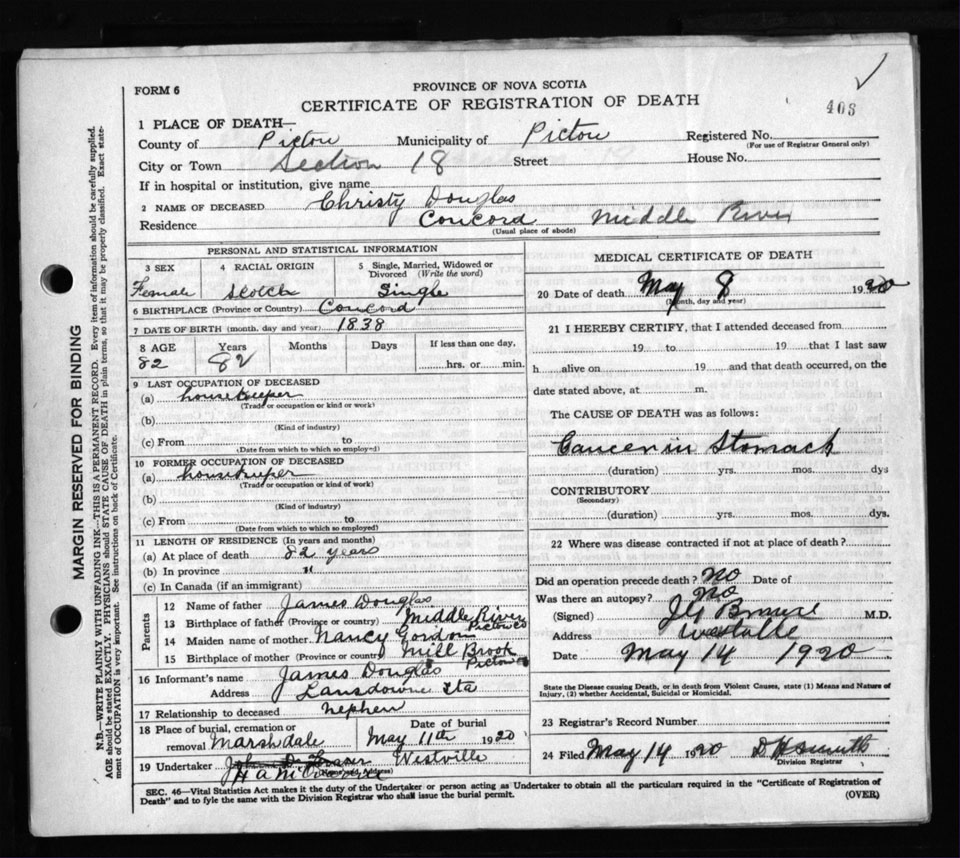 FORM 6
PROVINCE OF NOVA SCOTIA
CERTIFICATE OF REGISTRATION OF DEATH
408
1 PLACE OF DEATH—
County of Pictou Municipality of Pictou Registered No.
(For use of Registrar General only)
City or Town Section 18 Street House No.
If in hospital or institution, give name
2 NAME OF DECEASED Christy Douglas
Residence Concord Middle River
(Usual place of abode)
PERSONAL AND STATISTICAL INFORMATION
3 SEX 4 RACIAL ORIGIN 5 Single, Married, Widowed or Divorced (Write the word)
Female Scotch Single
6 BIRTHPLACE (Province or Country) Concord
7 DATE OF BIRTH (month, day and year) 1838
8 AGE Years Months Days If less than one day,
82 82 hrs. or min.
9 LAST OCCUPATION OF DECEASED
(a) housekeeper
(Trade or occupation or kind or work)
(b)
(Kind of industry)
(c) From to
(Date from which to which so employed)
10 FORMER OCCUPATION OF DECEASED
(a) housekeeper
(Trade or occupation or kind of work)
(b)
(Kind of industry)
(c) From to
(Date from which to which so employed)
11 LENGTH OF RESIDENCE (In years and months)
(a) At place of death 82 years
(b) In province "
(c) In Canada (if an immigrant)
Parents
12 Name of father James Douglas
13 Birthplace of father (Province or country) Middle River Pictou Co
14 Maiden name of mother Nancy Gordon
15 Birthplace of mother (Province or country) Mill Brook Pictou Co
16 Informant's name James Douglas
Address Lansdowne Sta
17 Relationship to deceased nephew
18 Place of burial, cremation or removal Marshdale Date of burial May 11th 1920
19 Undertaker Westville
(Name and Address)
MEDICAL CERTIFICATE OF DEATH
20 Date of death May 8 1920
(Month, day and year)
21 I HEREBY CERTIFY, that I attended deceased from
19 to 19 that I last saw
h alive on 19 and that death occurred, on the
date stated above, at m.
The CAUSE OF DEATH was as follows:
Cancer in Stomach
(duration) yrs. mos. dys
CONTRIBUTORY
(Secondary)
(duration) yrs. mos. dys.
22 Where was disease contracted if not at place of death?
Did an operation precede death? No Date of
Was there an autopsy? No
(Signed) M.D.
Address
Date May 14 1920
State the Disease causing Death, or in death from Violent Causes, state (1) Means and Nature of
Injury, (2) whether Accidental, Suicidal or Homicidal.
23 Registrar's Record Number
24 Filed May 14 1920 D H Smith
Division Registrar
SEC. 46—Vital Statistics Act makes it the duty of the Undertaker or person acting as Undertaker to obtain all the particulars required in the "Certificate of Registration of
Death" and to fyle the same with the Division Registrar who shall issue the burial permit.
(OVER)
MARGIN RESERVED FOR BINDING
N.B.—WRITE PLAINLY WITH UNFADING INK—THIS IS A PERMANENT RECORD. Every item of information should be carefully supplied.
AGE should be stated EXACTLY. PHYSICIANS should STATE CAUSE OF DEATH in plain terms, so that it may be properly classified. Exact statement
of OCCUPATION is very important. See instructions on back of Certificate.